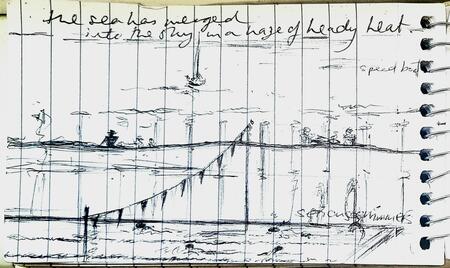 The sea has merged
into the sky in a haze of heady heat.
speed boat
serious swimmers